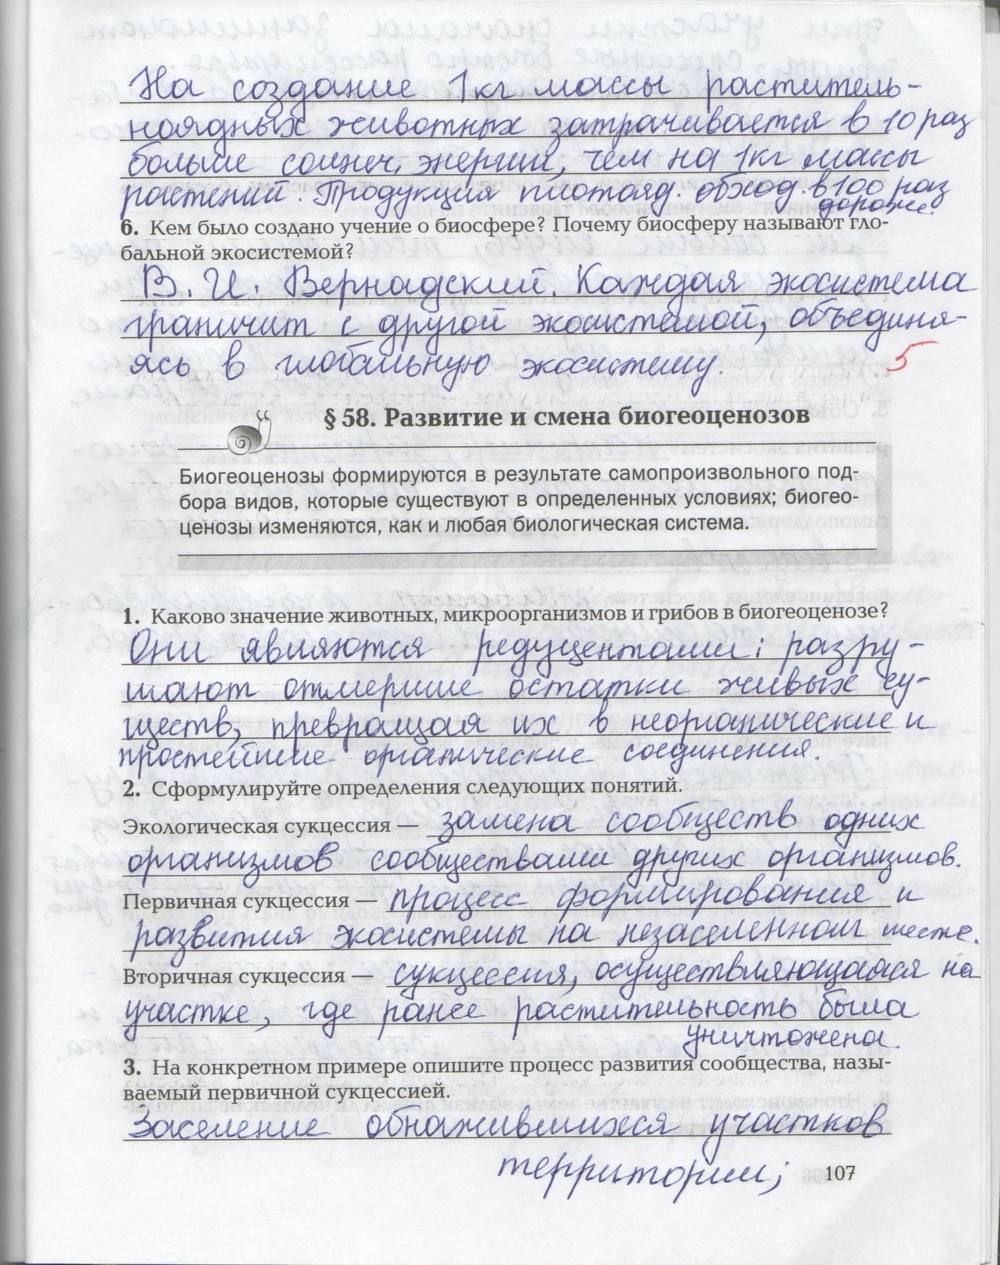 На создание 1кг массы раститель-
ноядных животных затрачивается в 10 раз
больше солнеч. энергии, чем на 1кг массы
растений. Продукция плотояд. обход. в 100 раз
дороже.
6. Кем было создано учение о биосфере? Почему биосферу называют гло-
бальной экосистемой?
В. И. Вернадский Каждая экосистема
граничит с другой экосистемой, объединя-
ясь в глобальную экосистему.
5
§ 58. Развитие и смена биогеоценозов
Биогеоценозы формируются в результате самопроизвольного под-
бора видов, которые существуют в определенных условиях; биогео-
ценозы изменяются, как и любая биологическая система.
1. Каково значение животных, микроорганизмов и грибов в биогеоценозе?
Они являются редуцентами: разру-
шают отмершие остатки живых су-
ществ, превращая их в неорганические и
простейшие органические соединения.
2. Сформулируйте определения следующих понятий.
Экологическая сукцессия — замена сообществ одних
организмов сообществами других организмов.
Первичная сукцессия — процесс формирования и
развития экосистемы на незаселенном месте.
Вторичная сукцессия — сукцессия, осуществляющаяся на
участке, где ранее растительность была
уничтожена.
3. На конкретном примере опишите процесс развития сообщества, назы-
ваемый первичной сукцессией.
Заселение обнажившихся участков
территории;
107